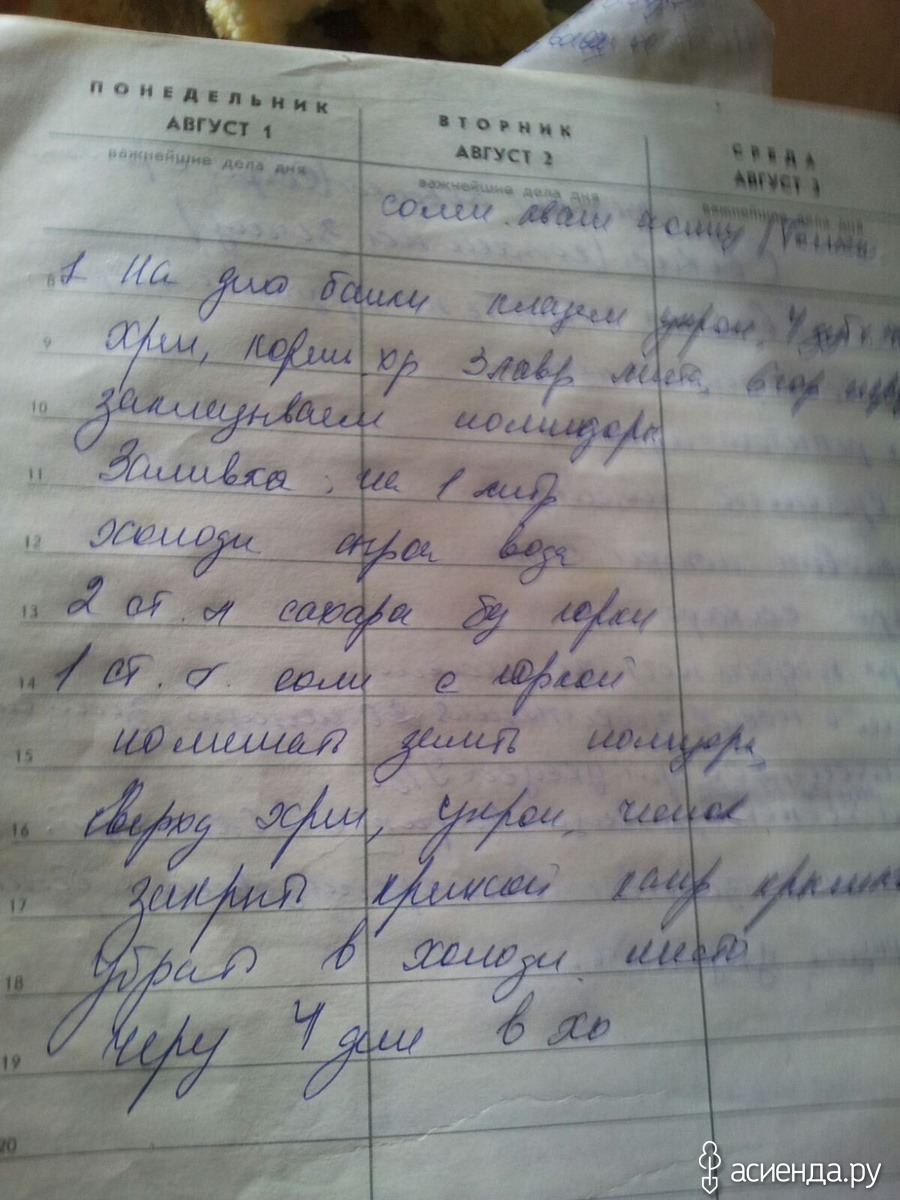 ПОНЕДЕЛЬНИК
АВГУСТ 1
важнейшие дела дня
ВТОРНИК
АВГУСТ 2
важнейшие дела дня
СРЕДА
АВГУСТ 3
важнейшие дела дня
солен. кваш помид
8 1 На дно банки кладем укроп, 4 зуб ч.
9 Хрен, корень хр 3 лавр листа,
10 закладываем помидоры
11 Заливка: на 1 литр
12 холодн сырая вода
13 2 ст. л сахара без горки
14 1 ст. л. соли с горкой
15 помешать залить помидоры
16 Сверху хрен, укроп, чеснок
17 закрыть крышкой капр крышк
18 Убрать в холодн место
19 через 4 дня в хо
20
асиенда.ру